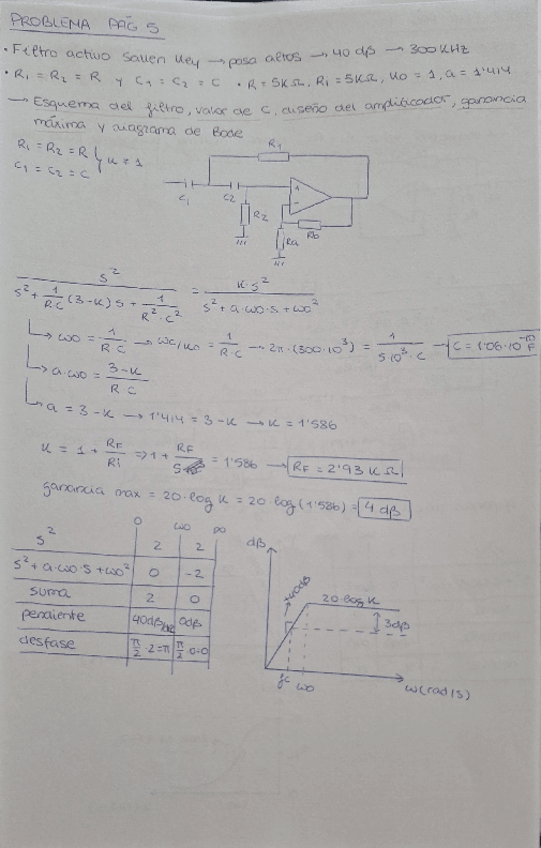 PROBLEMA PÁG 5
• Filtro activo Sallen Key → pasa altos → 40 dB → 300 KHz
• R1 = R2 = R y C1 = C2 = C • R = 5KΩ, Ri = 5KΩ, K0 = 1, a = 1'414
→ Esquema del filtro, valor de C, diseño del amplificador, ganancia
máxima y diagrama de Bode
R1 = R2 = R
C1 = C2 = C } K = 1
R1
C1
C2
R2
+
-
Rb
Ra
s² / (s² + 1/RC (3-K) s + 1/R²·C²) = K·s² / (s² + a·wo·s + wo²)
→ wo = 1/RC → wc/Ko = 1/R·C → 2π·(300·10³) = 1/5·10³·C → C = 1'06·10⁻¹⁰ F
→ a·wo = 3-K / RC
→ a = 3-K → 1'414 = 3-K → K = 1'586
K = 1 + RF/Ri ⇒ 1 + RF/5 = 1'586 → RF = 2'93 KΩ
ganancia max = 20·log K = 20·log(1'586) = 4 dB
0 wo ∞
s² 2 2
s² + a·wo·s + wo² 0 -2
suma 2 0
pendiente 40dB/dec 0dB
desfase π/2·2=π π/2·0=0
dB
40dB
20·log K
3dB
fc wo
w(rad/s)